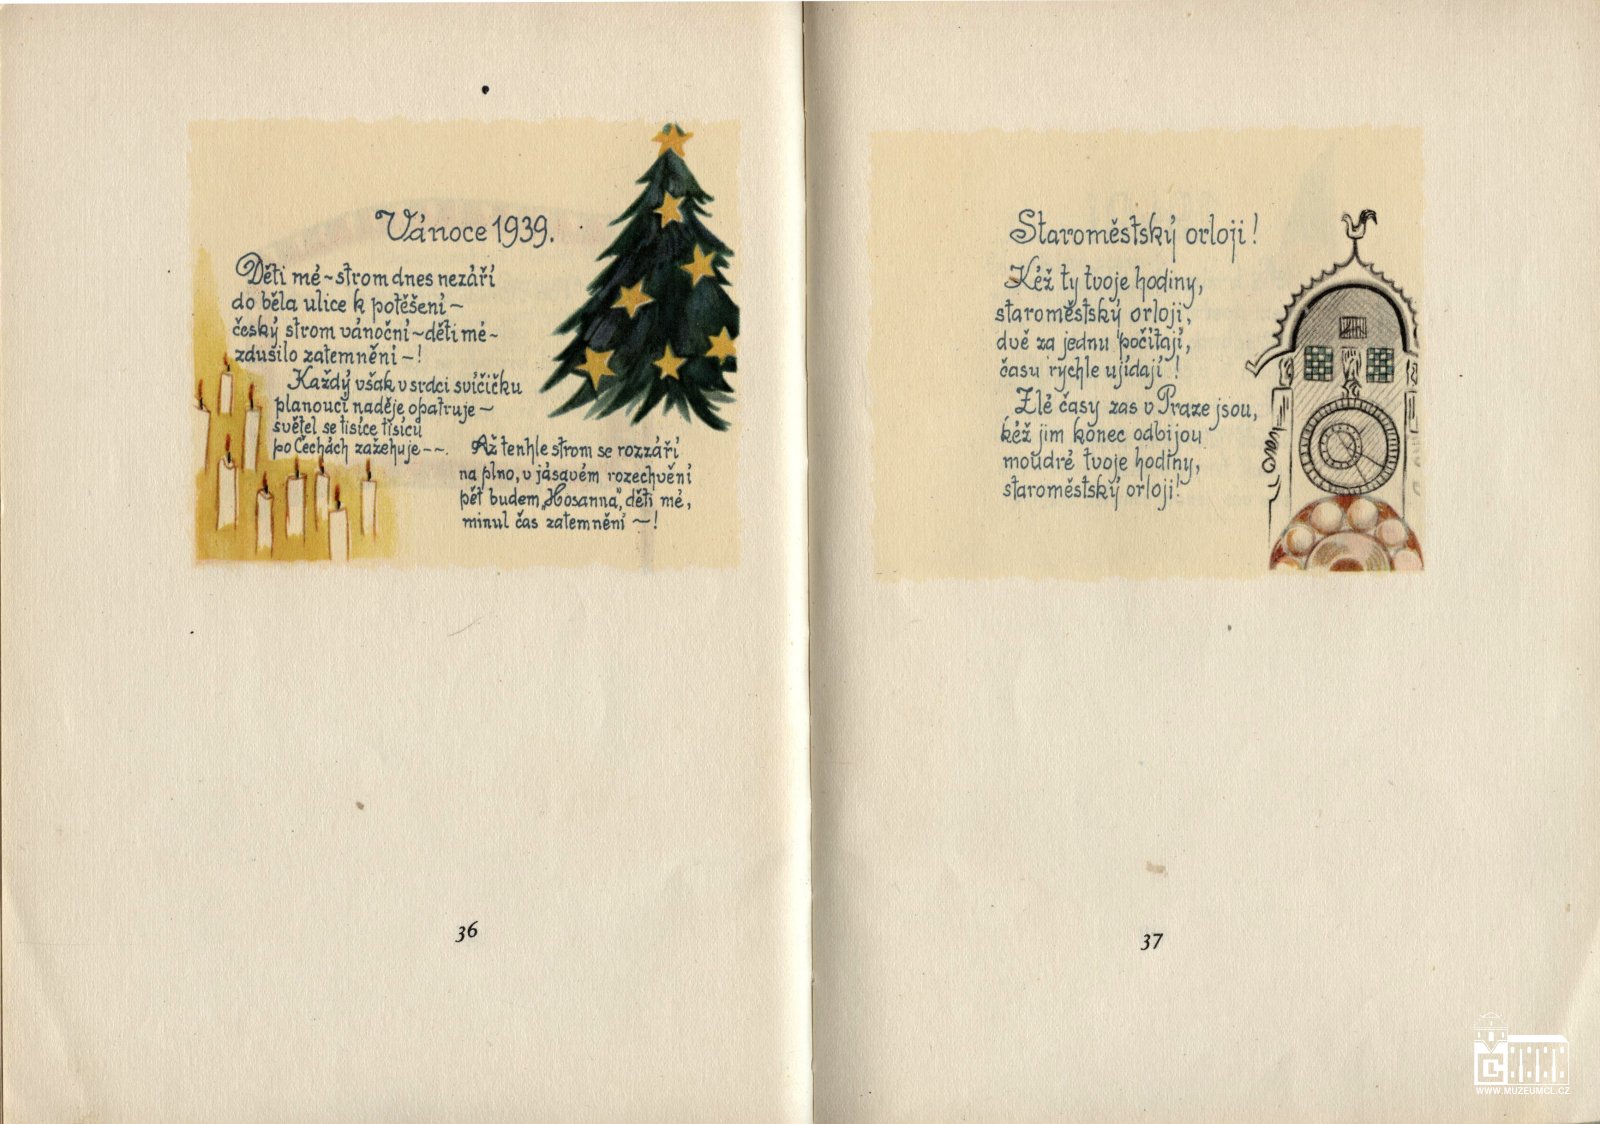 Vánoce 1939.
Děti mé ~ strom dnes nezáří
do běla ulice k potěšení ~
český strom vánoční ~ děti mé ~
zdušilo zatemnění ~ !
Každý však v srdci svíčičku
planoucí naděje opatruje ~
světel se tisíce tisíců
po Čechách zažehuje ~ ~.
Až tenhle strom se rozzáří
na plno, v jásavém rozechvění
pět budem „Hosanna", děti mé,
minul čas zatemnění ~ !
36
Staroměstský orloji !
Kéž ty tvoje hodiny,
staroměstský orloji,
dvě za jednu počítají,
času rychle ujídají !
Zlé časy zas v Praze jsou,
kéž jim konec odbijou
moudré tvoje hodiny,
staroměstský orloji!
37
WWW.MUZEUMCL.CZ